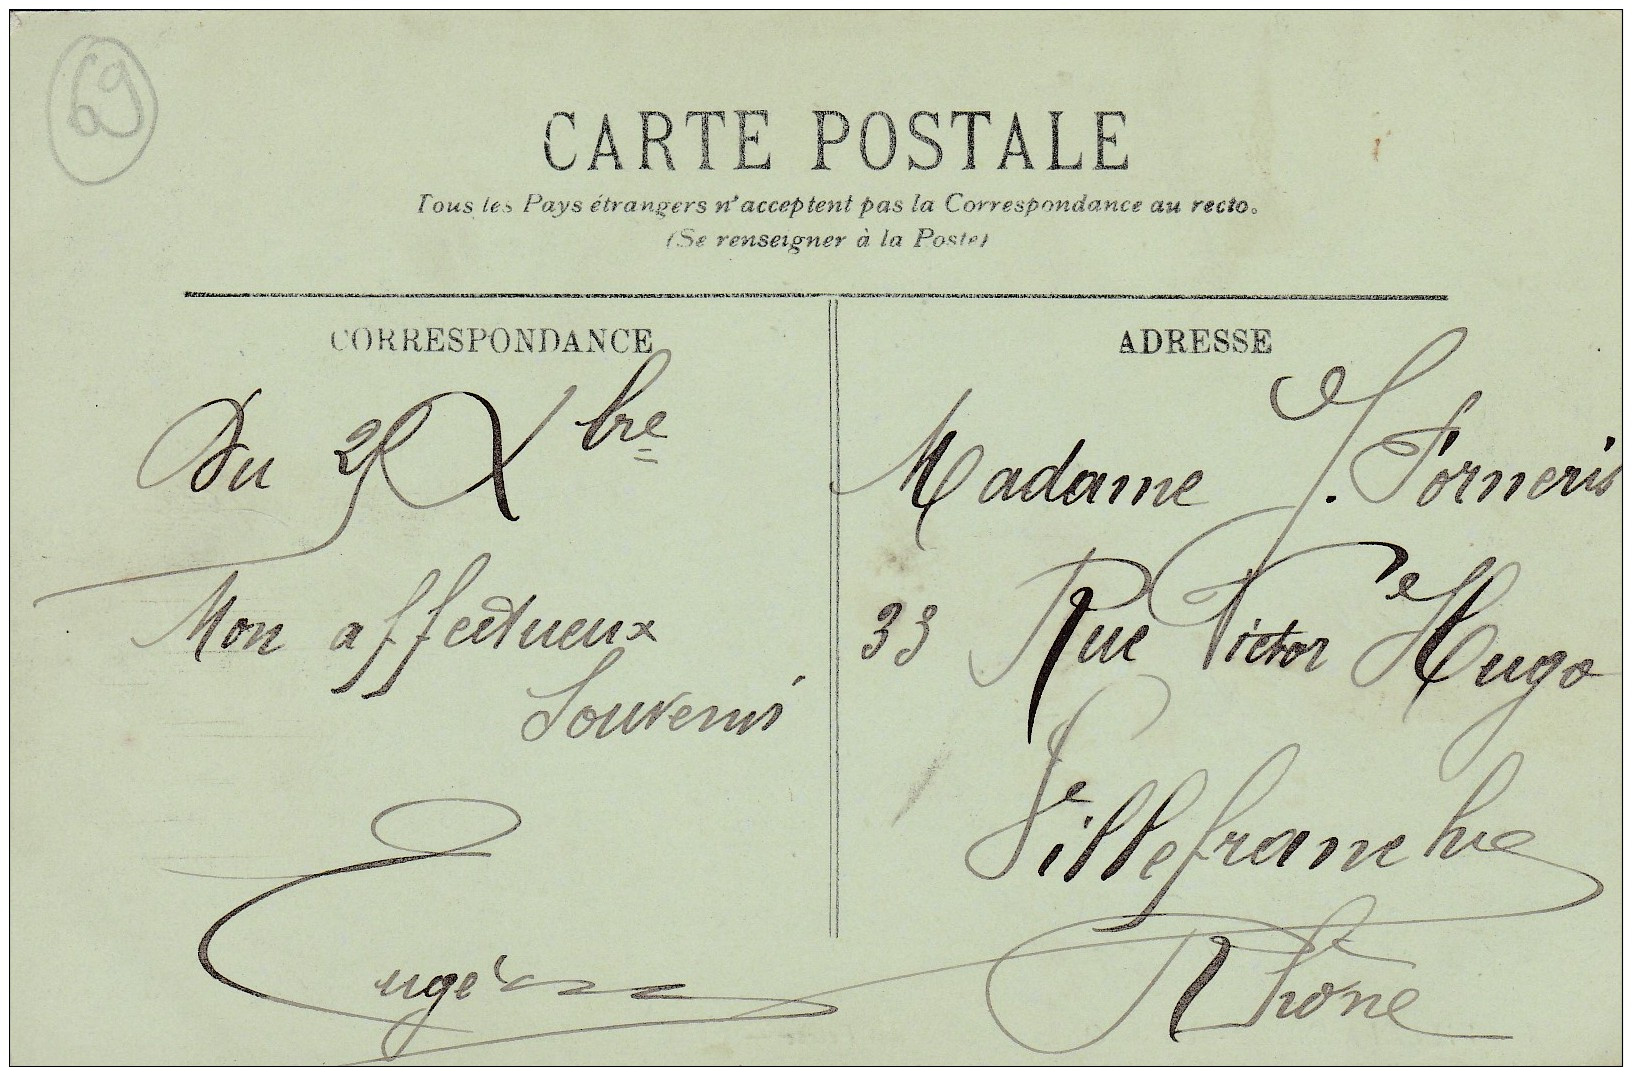 69
CARTE POSTALE
Tous les Pays étrangers n'acceptent pas la Correspondance au recto.
(Se renseigner à la Poste)
CORRESPONDANCE
Du 25 Xbre
Mon affectueux
Souvenir
Eugénie
ADRESSE
Madame J. Forneris
33 Rue Victor Hugo
Villefranche
Rhone